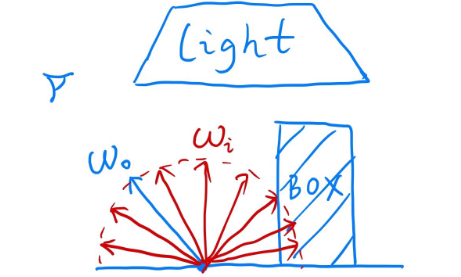 Light
ωi
ωo
BOX